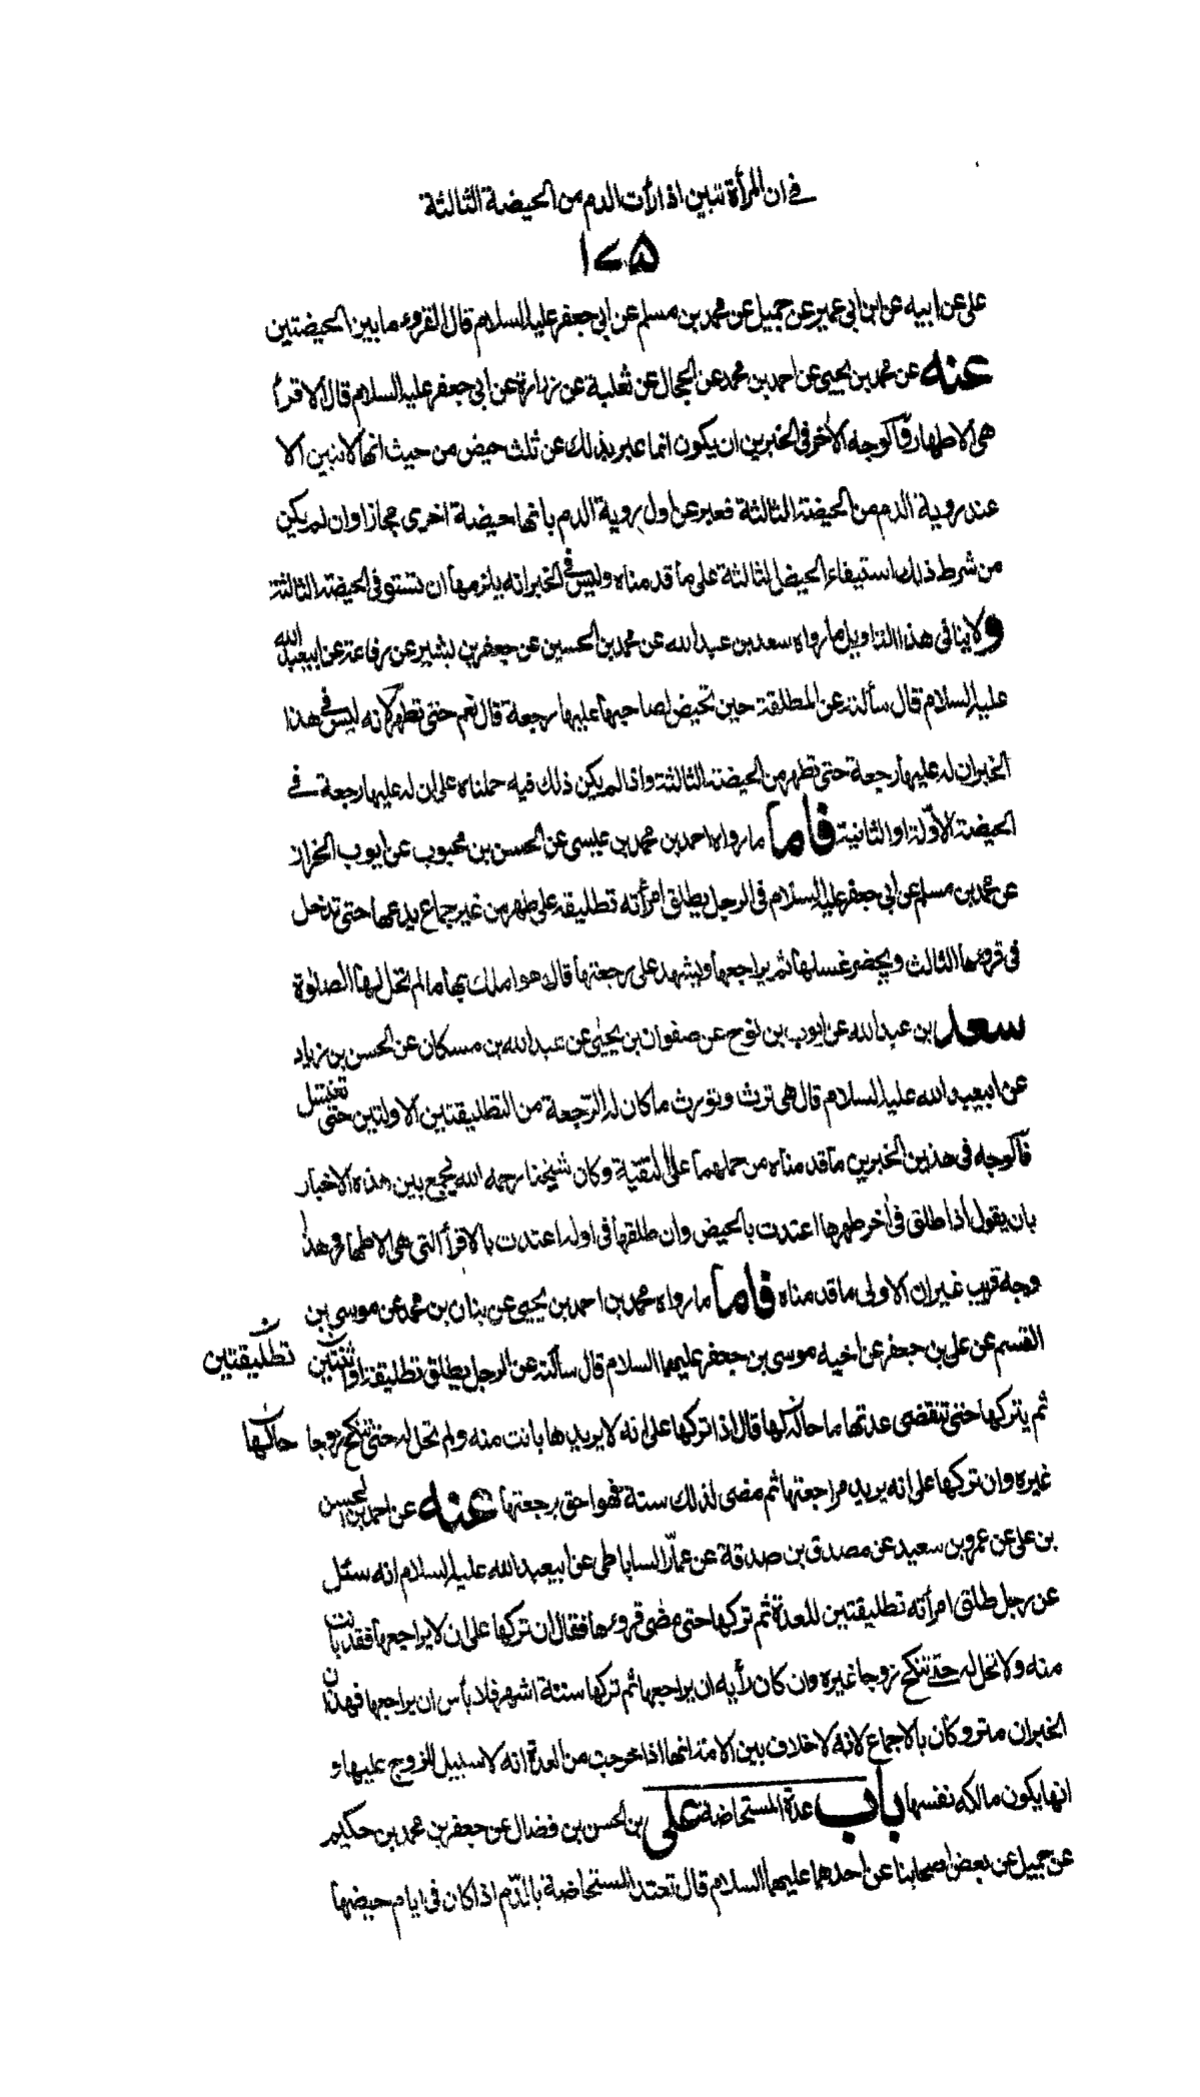 في ان المرأة تبين اذا رأت الدم من الحيضة الثالثة
١٧۵
على عن ابيه عن ابن ابى عمير عن جميل عن محمد بن مسلم عن ابى جعفر عليه السلام قال القروء ما بين الحيضتين
عنه عن محمد بن يحيى عن احمد بن محمد عن الحجال عن ثعلبة عن زرارة عن ابى جعفر عليه السلام قال الاقرأ
هى الاطهار فالوجه الاخر فى الخبرين ان يكون انما عبر بذلك عن ثلث حيض من حيث انها لا تبين الا
عند روية الدم من الحيضة الثالثة فعبر عن اول روية الدم بانها حيضة اخرى مجازا وان لم يكن
من شرط ذلك استيفاء الحيض الثالثة على ما قدمناه وليس فى الخبر انه يلزمها ان تستوفى الحيضة الثالثة
ولا ينافى هذا التاويل ما رواه سعد بن عبد الله عن محمد بن الحسين عن جعفر بن بشير عن رفاعة عن ابيعبد الله
عليه السلام قال سألته عن المطلقة حين تحيض لصاحبها عليها رجعة قال نعم حتى تطهر لانه ليس فى هذا
الخبر ان له عليها رجعة حتى تطهر من الحيضة الثالثة واذا لم يكن ذلك فيه حملناه على ان له عليها رجعة فى
الحيضة الاولة او الثانية فاما ما رواه احمد بن محمد بن عيسى عن الحسن بن محبوب عن ايوب الخزاز
عن محمد بن مسلم عن ابى جعفر عليه السلام فى الرجل يطلق امرأته تطليقة على طهر من غير جماع يدعها حتى تدخل
فى قروءها الثالث ويحضر غسلها ثم يراجعها ويشهد على رجعتها قال هو املك بها ما لم تحل لها الصلوة
سعد بن عبد الله عن ايوب بن نوح عن صفوان بن يحيى عن عبد الله بن مسكان عن الحسن بن زياد
عن ابيعبد الله عليه السلام قال هى ترث وتورث ما كان له الرجعة من التطليقتين الاولتين حتى تغتسل
فالوجه فى هذين الخبرين ما قدمناه من حملهما على التقية وكان شيخنا رحمه الله يجمع بين هذه الاخبار
بان يقول اذا طلق فى اخر طهرها اعتدت بالحيض وان طلقها فى اوله اعتدت بالاقرأ التى هى الاطهار وهذا
وجه قريب غير ان الاولى ما قدمناه فاما ما رواه محمد بن احمد بن يحيى عن بنان بن محمد عن موسى بن
القسم عن على بن جعفر عن اخيه موسى بن جعفر عليهما السلام قال سألته عن الرجل يطلق تطليقة او ثنتين تطليقتين
ثم يتركها حتى تنقضى عدتها ما حالها قال اذا تركها على انه لا يريدها بانت منه ولم تحل له حتى تنكح زوجا
غيره وان تركها على انه يريد مراجعتها ثم مضى لذلك سنة فهو احق برجعتها عنه عن احمد بن الحسن
بن على عن عمرو بن سعيد عن مصدق بن صدقة عن عمار الساباطى عن ابيعبد الله عليه السلام انه سئل
عن رجل طلق امرأته تطليقتين للعدة ثم تركها حتى مضى قروءها فقال ان تركها على ان لا يراجعها فقد بانت
منه ولا تحل له حتى تنكح زوجا غيره وان كان رأيه ان يراجعها ثم تركها ستة اشهر فلا بأس ان يراجعها فهذان
الخبران متروكان بالاجماع لانه لا خلاف بين الامة انها اذا خرجت من العدة انه لا سبيل للزوج عليها و
انها يكون مالكه نفسها باب عدة المستحاضة على بن الحسن بن فضال عن جعفر بن محمد بن حكيم
عن جميل عن بعض اصحابنا عن احدهما عليهما السلام قال تعتد المستحاضة بالدم اذا كان فى ايام حيضها